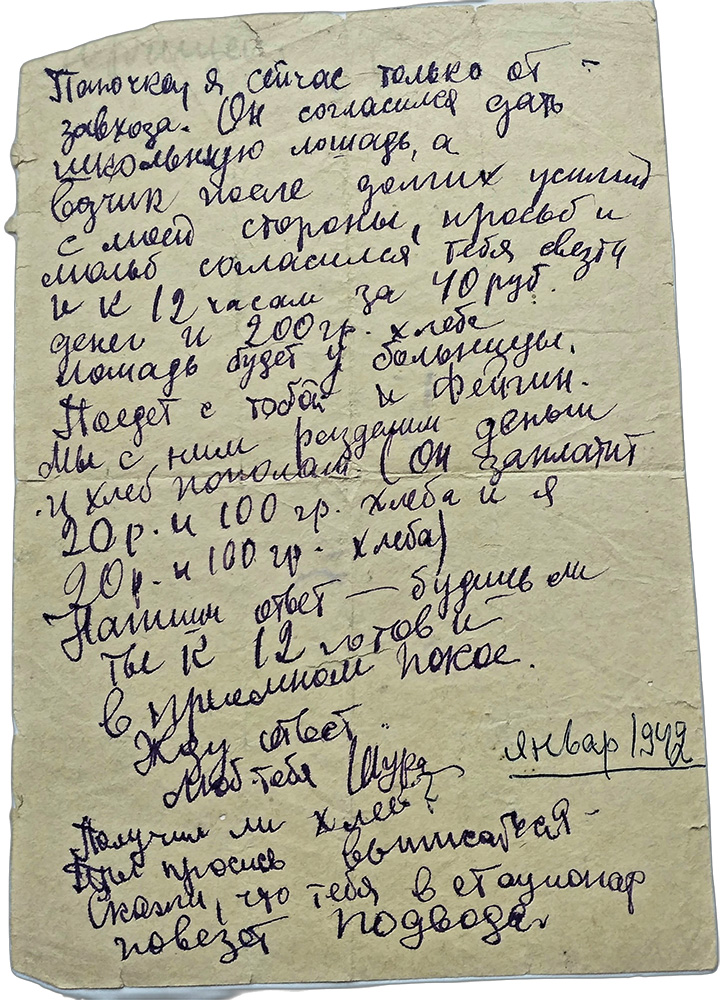 Папочка, я сейчас только от
завхоза. Он согласился дать
школьную лошадь, а
возчик после долгих усилий
с моей стороны, просьб и
мольб согласился тебя свезти
и к 12 часам за 40 руб.
денег и 200 гр. хлеба
лошадь будет у больницы.
Поедет с тобой и Фейгин.
Мы с ним разделим деньги
и хлеб пополам. (Он заплатит
20 р. и 100 гр. хлеба и я
20 р. и 100 гр. хлеба)
Напиши ответ — будишь ли
ты к 12 готов и
в приемном покое.
Жду ответ
Люб. тебя Шура
январ 1942
Получил ли хлеб?
просись выписаться
Скажи, что тебя в стационар
повезет подвода.